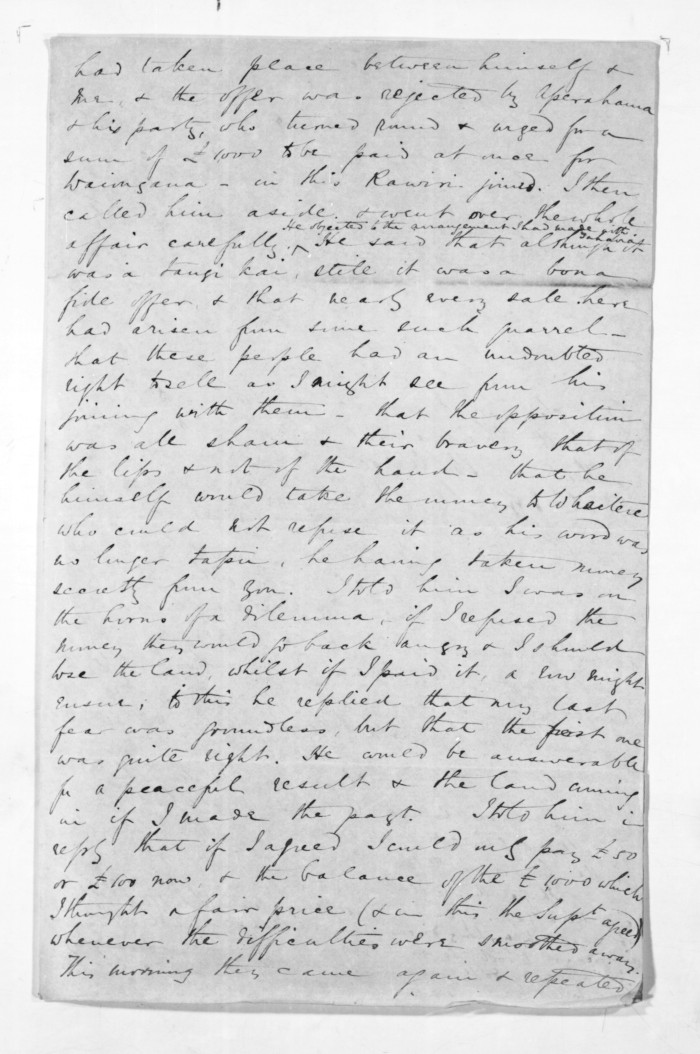 had taken place between himself &
me, & the offer was rejected by Iperahama
& his party, who turned round & urged for a
sum of £1000 to be paid at once for
Waiongana - in this Rawiri joined. I then
called him aside & went over the whole
He objected to the arrangement I had made with
affair carefully. ^ He said that although it
was a taugi kai, stile it was a bona
fide offer & that nearly every sale here
had arisen from some such quarrel -
that these people had an undoubted
right to sell as I might see from his
joining with them - that the opposition
was all sham & their bravery that of
the lips & not of the hand - that he
himself would take the money to Whaitere
who could not refuse it as his word was
no longer tapu, he having taken money
secretly from you. I told him I was on
the horns of a dilemma, if I refused the
money they would go back angry & I should
lose the land, whilst if I paid it, a row might
ensue; to this he replied that my last
fear was groundless, but that the first one
was quite right. He would be answerable
for a peaceful result & the land coming
in if I made the payt. I told him in
reply that if I agreed I could only pay £50
or £100 now, & the balance of the £1,000 which
I thought a fair price (& in this the Supt. agreed)
whenever the difficulties were smoothed away.
This morning they came again & repeated